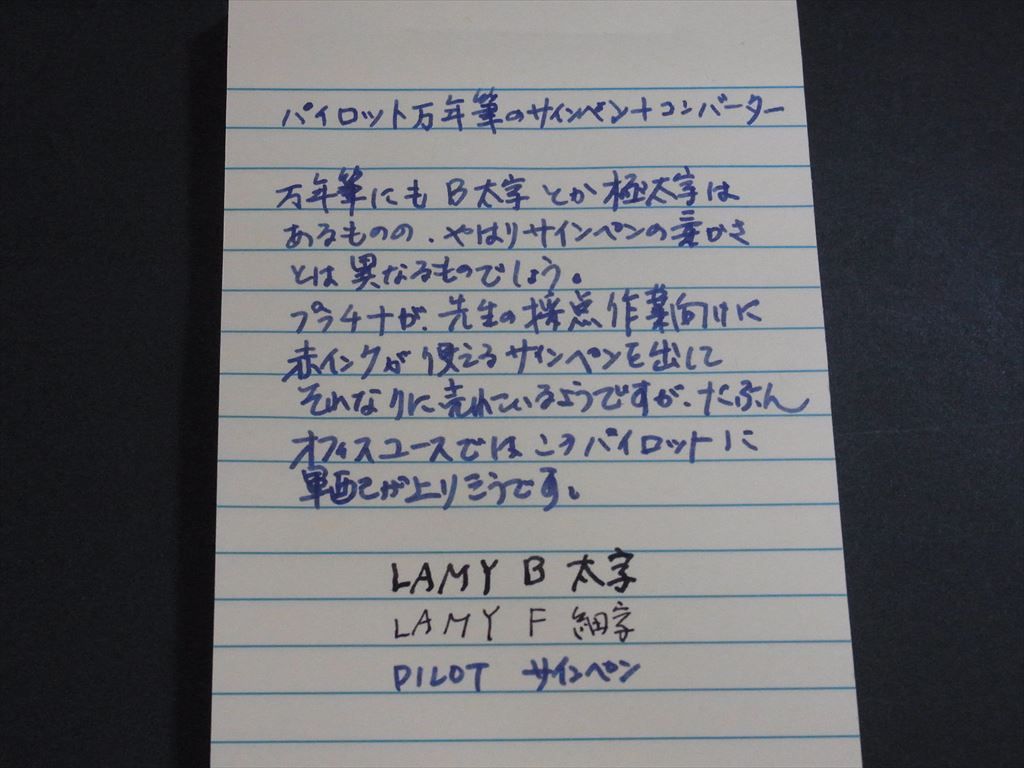 パイロット万年筆のサインペン+コンバーター
万年筆にも B太字 とか 極太字は
あるものの、やはりサインペンの書かさ
とは異なるものでしょう。
プラチナが、先生の採点作業向けに
赤インクが使えるサインペンを出して
それなりに売れているようですが、たぶん
オフィスユースではこのパイロットに
軍配が上りそうです。
LAMY B 太字
LAMY F 細字
PILOT サインペン